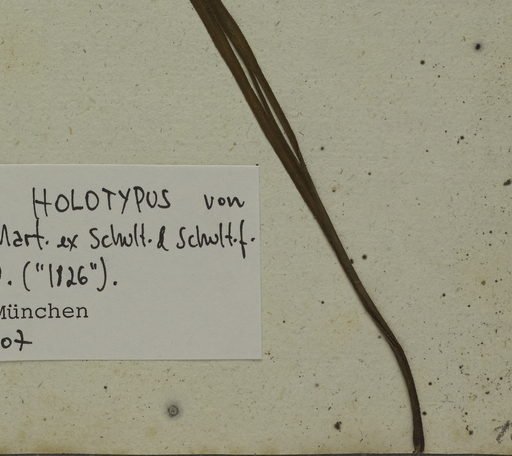 HOLOTYPUS von
Mart. ex Schult. & Schult.f.
). ("1826").
München
07